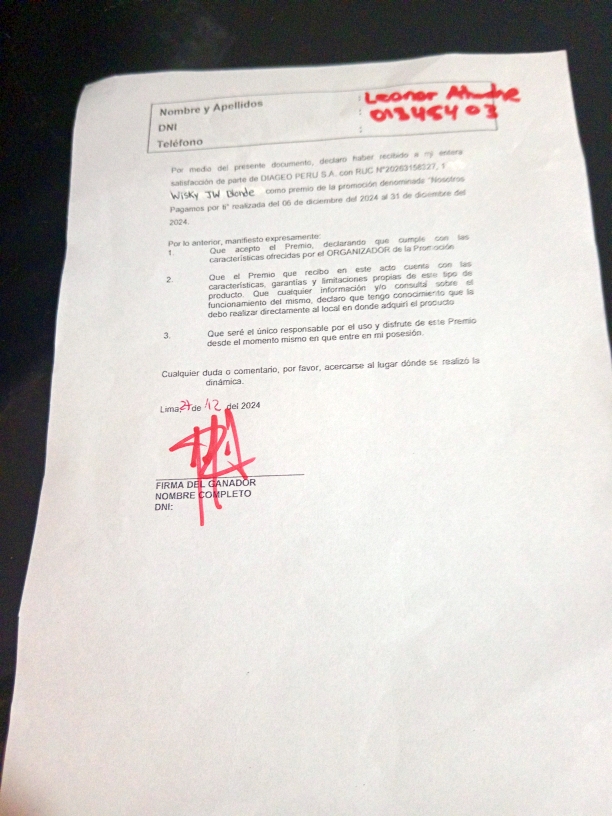 Nombre y Apellidos : Leonor
DNI : 01345403
Teléfono :
Por medio del presente documento, declaro haber recibido a mi entera
satisfacción de parte de DIAGEO PERU S.A. con RUC N°20263158227, 1
Wisky JW Blonde como premio de la promoción denominada "Nosotros
Pagamos por ti" realizada del 06 de diciembre del 2024 al 31 de diciembre del
2024.
Por lo anterior, manifiesto expresamente:
1. Que acepto el Premio, declarando que cumple con las
características ofrecidas por el ORGANIZADOR de la Promoción
2. Que el Premio que recibo en este acto cuenta con las
características, garantías y limitaciones propias de este tipo de
producto. Que cualquier información y/o consulta sobre el
funcionamiento del mismo, declaro que tengo conocimiento que la
debo realizar directamente al local en donde adquirí el producto
3. Que seré el único responsable por el uso y disfrute de este Premio
desde el momento mismo en que entre en mi posesión.
Cualquier duda o comentario, por favor, acercarse al lugar dónde se realizó la
dinámica.
Lima, 27 de 12 del 2024
FIRMA DEL GANADOR
NOMBRE COMPLETO
DNI: